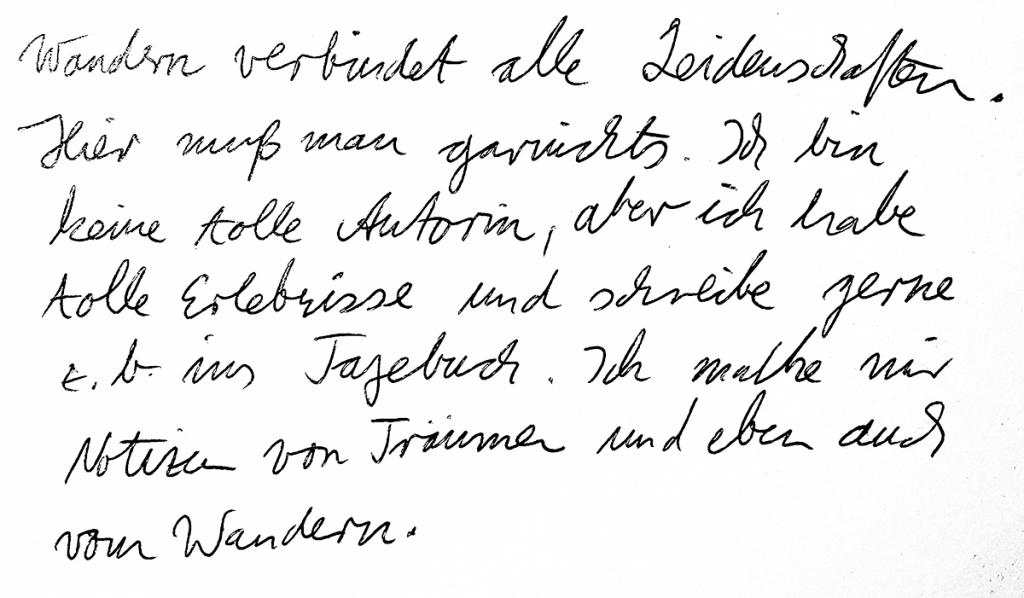 Wandern verbindet alle Leidenschaften.
Hier muß man garnichts. Ich bin
keine tolle Autorin, aber ich habe
tolle Erlebnisse und schreibe gerne
z.b. ins Tagebuch. Ich mache mir
Notizen von Träumen und eben auch
vom Wandern.